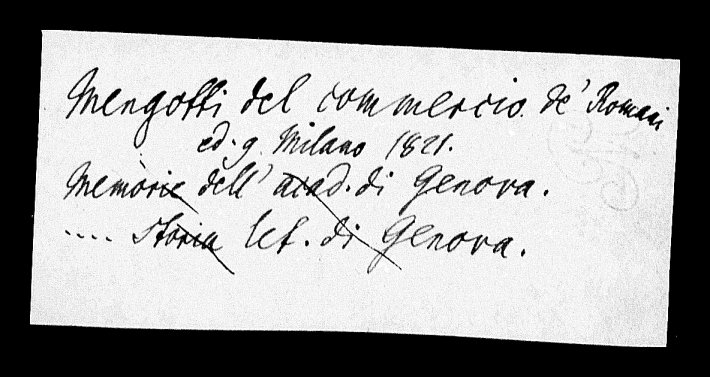 Mengotti del commercio de' Romani
ed. 9. Milano 1821.
Memorie dell' acad. di Genova.
.... Storia let. di Genova.